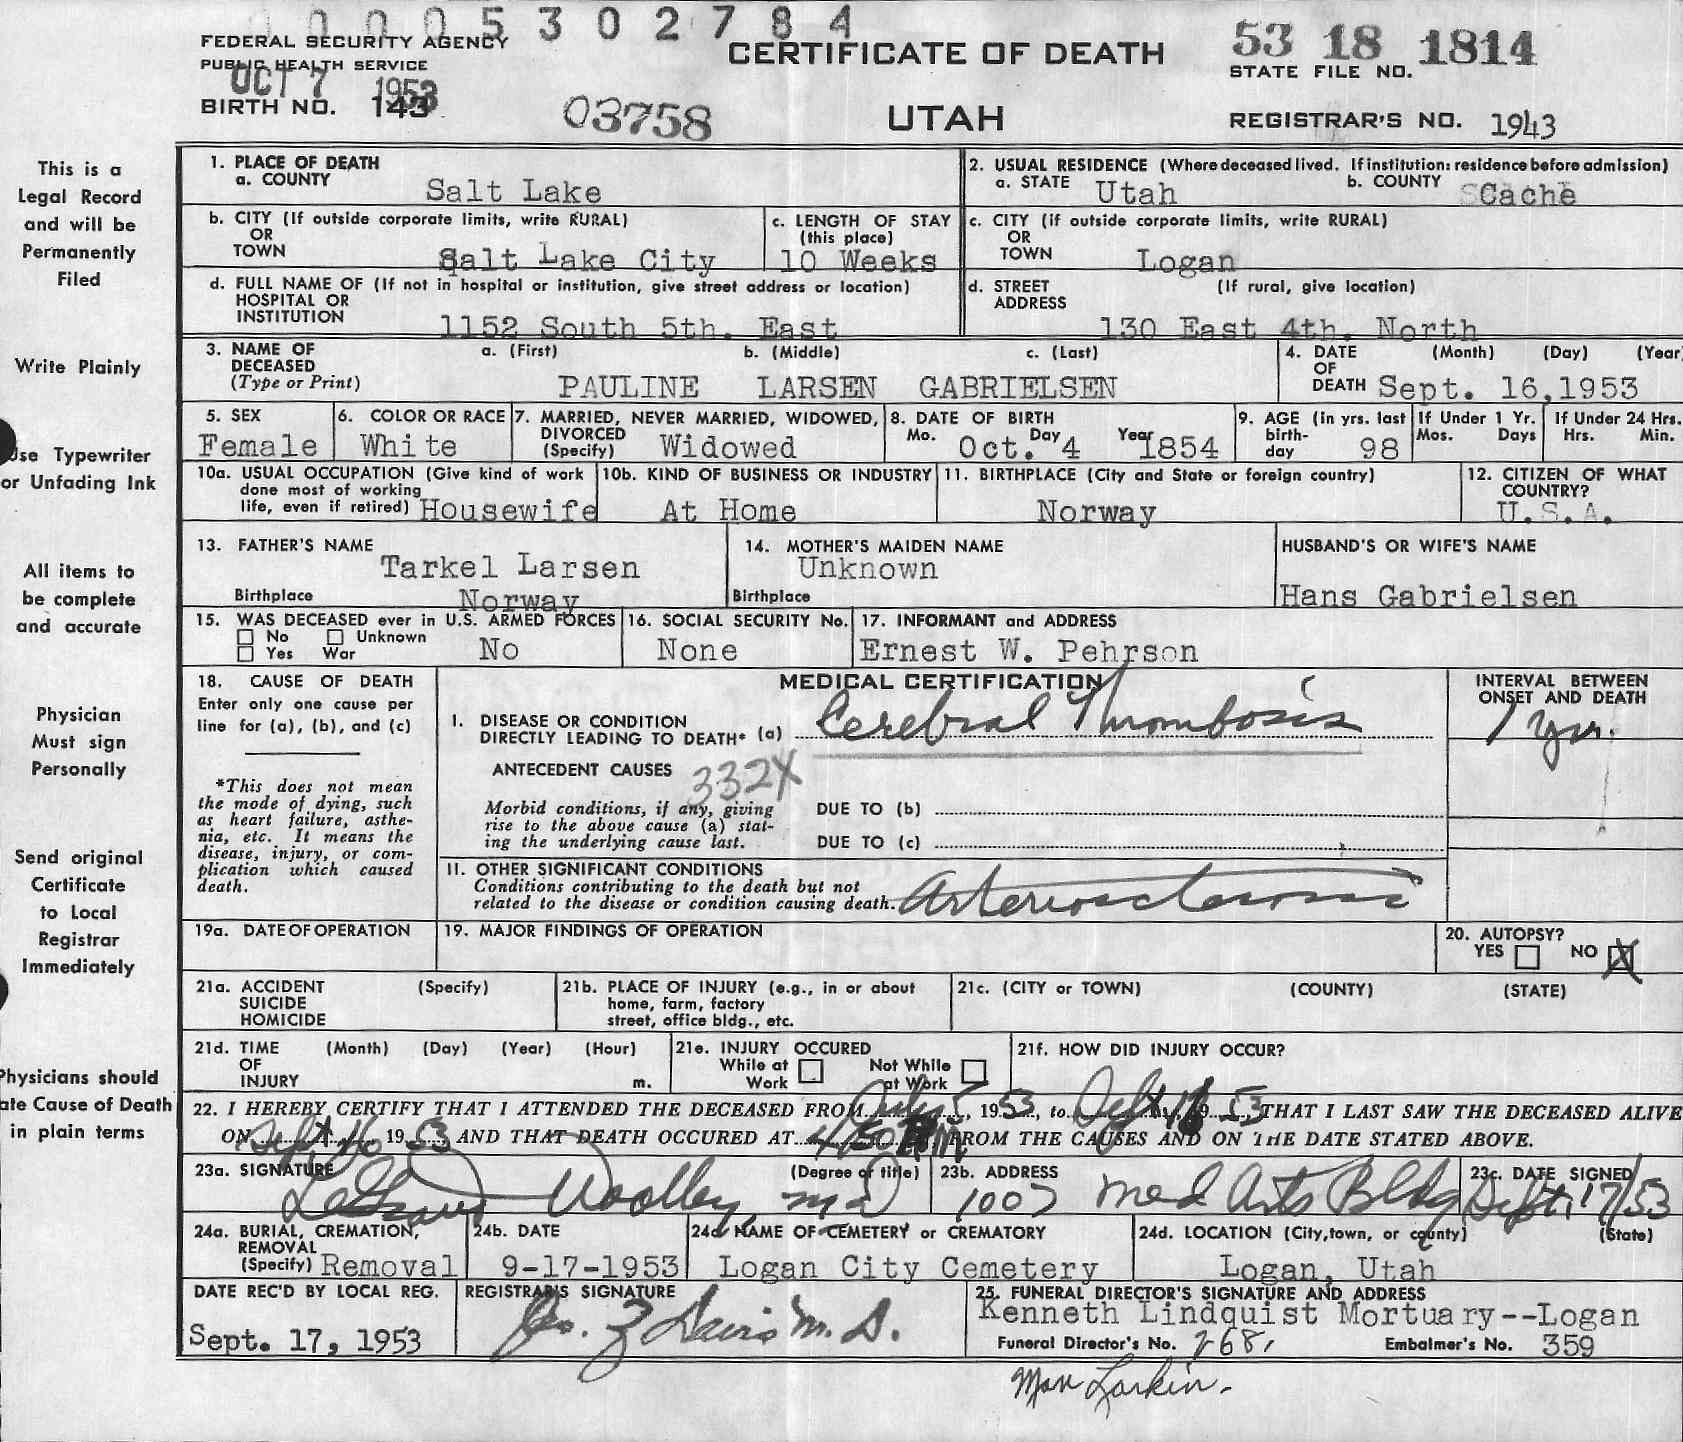 0005302784
FEDERAL SECURITY AGENCY
PUBLIC HEALTH SERVICE
OCT 7 1953
BIRTH NO. 143
03758
CERTIFICATE OF DEATH
UTAH
53 18 1814
STATE FILE NO.
REGISTRAR'S NO. 1943
This is a
Legal Record
and will be
Permanently
Filed
Write Plainly
Use Typewriter
or Unfading Ink
All items to
be complete
and accurate
Physician
Must sign
Personally
Send original
Certificate
to Local
Registrar
Immediately
Physicians should
ate Cause of Death
in plain terms
1. PLACE OF DEATH
a. COUNTY Salt Lake
2. USUAL RESIDENCE (Where deceased lived. If institution: residence before admission)
a. STATE Utah b. COUNTY Cache
b. CITY (If outside corporate limits, write RURAL)
OR
TOWN Salt Lake City
c. LENGTH OF STAY
(this place)
10 Weeks
c. CITY (if outside corporate limits, write RURAL)
OR
TOWN Logan
d. FULL NAME OF (If not in hospital or institution, give street address or location)
HOSPITAL OR
INSTITUTION 1152 South 5th. East
d. STREET (If rural, give location)
ADDRESS 130 East 4th. North
3. NAME OF a. (First) b. (Middle) c. (Last)
DECEASED
(Type or Print) PAULINE LARSEN GABRIELSEN
4. DATE (Month) (Day) (Year
OF
DEATH Sept. 16,1953
5. SEX
Female
6. COLOR OR RACE
White
7. MARRIED, NEVER MARRIED, WIDOWED,
DIVORCED
(Specify) Widowed
8. DATE OF BIRTH
Mo. Day Year
Oct. 4 1854
9. AGE (in yrs. last
birth-
day 98
If Under 1 Yr.
Mos. Days
If Under 24 Hrs.
Hrs. Min.
10a. USUAL OCCUPATION (Give kind of work
done most of working
life, even if retired) Housewife
10b. KIND OF BUSINESS OR INDUSTRY
At Home
11. BIRTHPLACE (City and State or foreign country)
Norway
12. CITIZEN OF WHAT
COUNTRY?
U.S.A.
13. FATHER'S NAME
Tarkel Larsen
Birthplace Norway
14. MOTHER'S MAIDEN NAME
Unknown
Birthplace
HUSBAND'S OR WIFE'S NAME
Hans Gabrielsen
15. WAS DECEASED ever in U.S. ARMED FORCES
No Unknown
Yes War No
16. SOCIAL SECURITY No.
None
17. INFORMANT and ADDRESS
Ernest W. Pehrson
18. CAUSE OF DEATH
Enter only one cause per
line for (a), (b), and (c)
*This does not mean
the mode of dying, such
as heart failure, asthe-
nia, etc. It means the
disease, injury, or com-
plication which caused
death.
MEDICAL CERTIFICATION
I. DISEASE OR CONDITION
DIRECTLY LEADING TO DEATH* (a) Cerebral Thrombosis
ANTECEDENT CAUSES 332X
Morbid conditions, if any, giving
rise to the above cause (a) stat-
ing the underlying cause last.
DUE TO (b)
DUE TO (c)
II. OTHER SIGNIFICANT CONDITIONS
Conditions contributing to the death but not
related to the disease or condition causing death. Arteriosclerosis
INTERVAL BETWEEN
ONSET AND DEATH
1 yr.
19a. DATE OF OPERATION
19. MAJOR FINDINGS OF OPERATION
20. AUTOPSY?
YES NO X
21a. ACCIDENT (Specify)
SUICIDE
HOMICIDE
21b. PLACE OF INJURY (e.g., in or about
home, farm, factory
street, office bldg., etc.
21c. (CITY or TOWN) (COUNTY) (STATE)
21d. TIME (Month) (Day) (Year) (Hour)
OF
INJURY m.
21e. INJURY OCCURED
While at Not While
Work at Work
21f. HOW DID INJURY OCCUR?
22. I HEREBY CERTIFY THAT I ATTENDED THE DECEASED FROM July 5, 1953, to Sept 16 53 THAT I LAST SAW THE DECEASED ALIVE
ON Sept 16 1953 AND THAT DEATH OCCURED AT 4:50 M, FROM THE CAUSES AND ON THE DATE STATED ABOVE.
23a. SIGNATURE (Degree of title)
Woolley MD
23b. ADDRESS
1007 Med Arts Bldg
23c. DATE SIGNED
Sept. 17/53
24a. BURIAL, CREMATION,
REMOVAL
(Specify) Removal
24b. DATE
9-17-1953
24c NAME OF CEMETERY or CREMATORY
Logan City Cemetery
24d. LOCATION (City,town, or county) (State)
Logan, Utah
DATE REC'D BY LOCAL REG.
Sept. 17, 1953
REGISTRAR'S SIGNATURE
Geo. Z Davis M. D.
25. FUNERAL DIRECTOR'S SIGNATURE AND ADDRESS
Kenneth Lindquist Mortuary--Logan
Funeral Director's No. 268, Embalmer's No. 359
Max Larkin